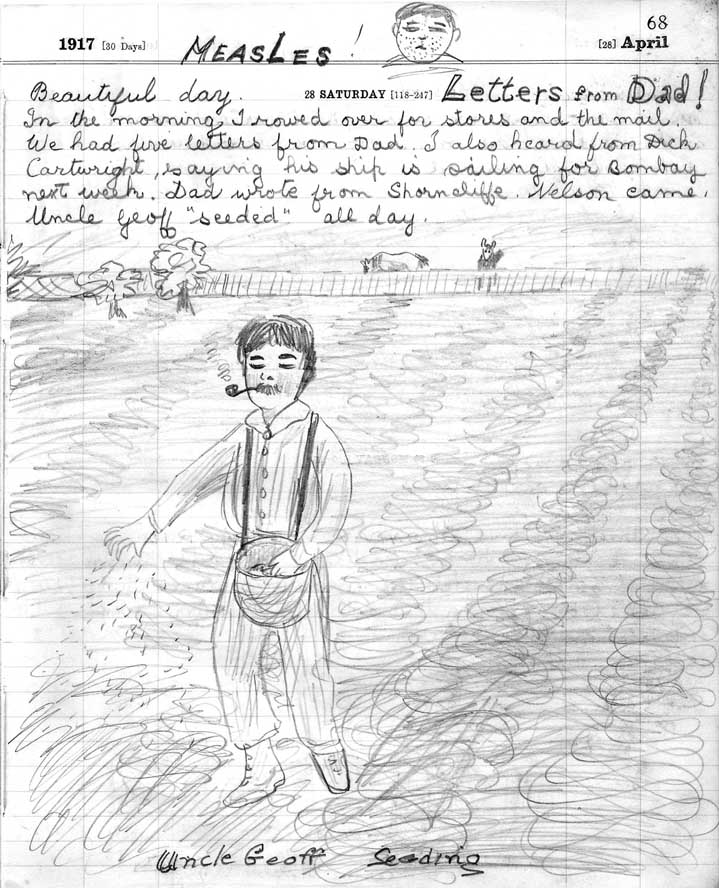 68
1917 [30 Days] MEASLES! [28] April
Beautiful day. 28 SATURDAY [118-247] Letters from Dad!
In the morning I rowed over for stores and the mail.
We had five letters from Dad. I also heard from Dick
Cartwright, saying his ship is sailing for Bombay
next week. Dad wrote from Shorncliffe. Nelson came.
Uncle Geoff "seeded" all day.
Uncle Geoff Seeding